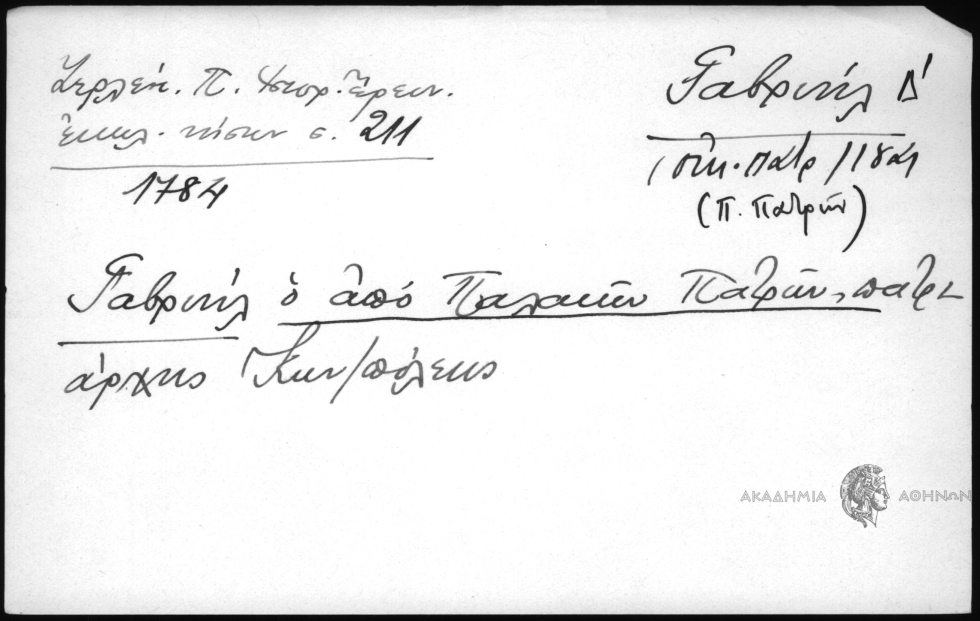 Ζερλέν. Π. Ἱστορ. Ἔρευν.
ἐκκλ. νήσων σ. 211
1784
Γαβριήλ Δ΄
οἰκ. πατρ
(Π. Πατρῶν)
Γαβριήλ ὁ ἀπό Παλαιῶν Πατρῶν, πατρι-
άρχης Κων/πόλεως
ΑΚΑΔΗΜΙΑ ΑΘΗΝΩΝ